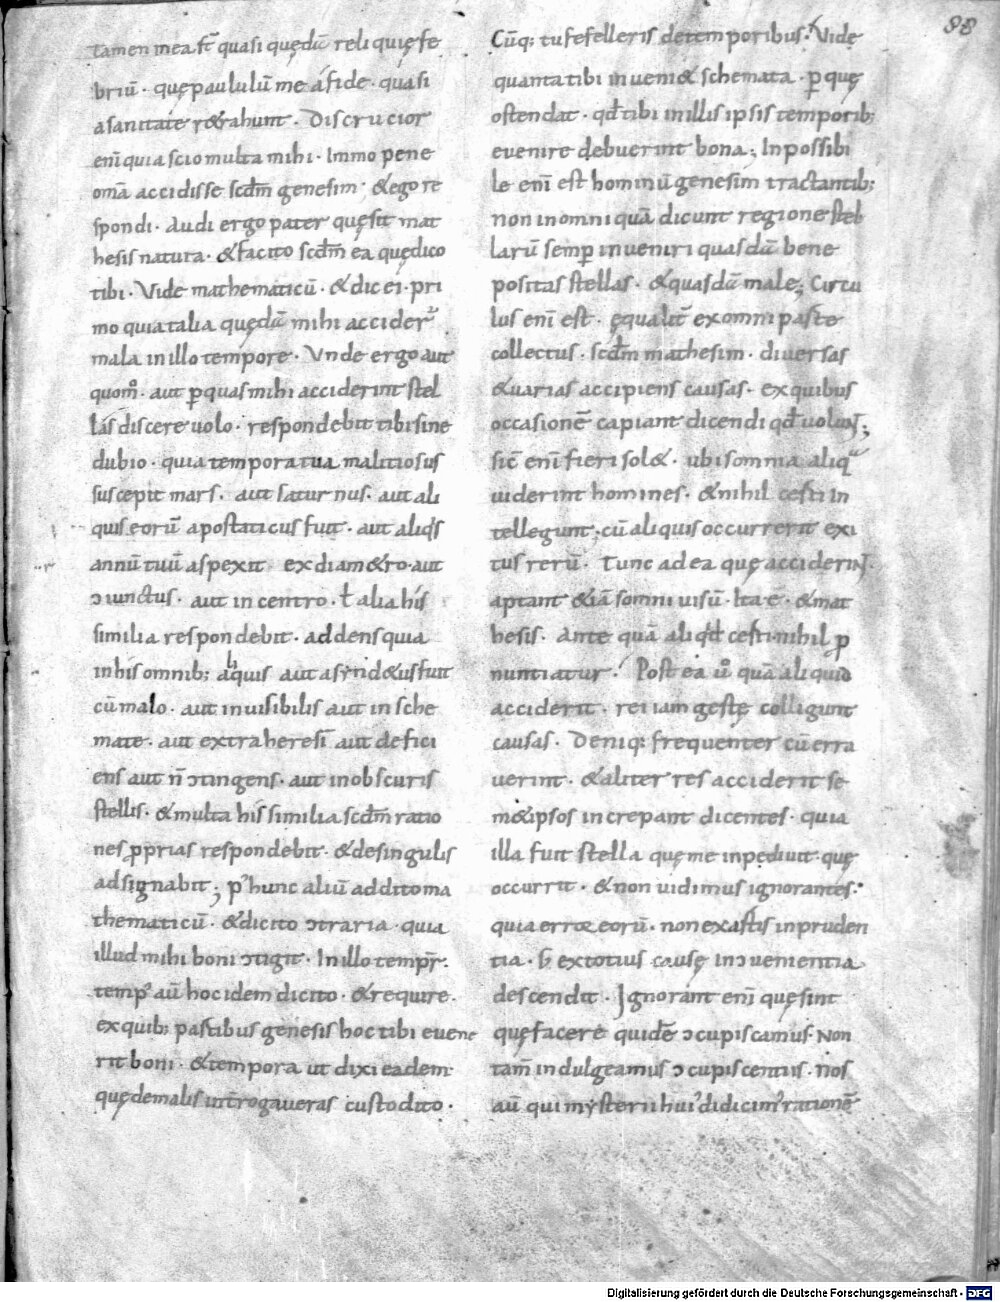 88
tamen mea st̄ quasi quędā reliquię fe
briū · quę paululū me a fide · quasi
a sanitate r&rahunt · Discrucior
enī quia scio multa mihi · Immo pene
omā accidisse scdm̄ genesim · & ego re
spondi · Audi ergo pater quę sit mat
hesis natura · & facito scdm̄ ea quę dico
tibi · Vide mathematicū · & dic ei · pri
mo quia talia quędā mihi accider̄
mala in illo tempore · Vnde ergo aut
quom̊ · aut ꝑ quas mihi acciderint stel
las discere uolo · respondebit tibi sine
dubio · quia tempora tua malitiosus
suscepit mars · aut saturnus · aut ali
quis eorū apostaticus fuit · aut aliq̇s
annū tuū aspexit ex diam&ro · aut
ↄiunctus · aut in centro · ł alia his
similia respondebit · addens quia
in his omnib; aliquis aut asynd&us fuit
cū malo · aut inuisibilis aut in sche
mate · aut extra heresī aut defici
ens aut n̄ ↄtingens · aut in obscuris
stellis · & multa his similia scdm̄ ratio
nes ꝓprias respondebit · & de singulis
adsignabit ; p' hunc aliū addito ma
thematicū · & dicito ↄtraria · quia
illud mihi boni ↄtigit · In illo tempr̄ ·
temp' aū hoc idem dicito · & require ·
ex quib; partibus genesis hoc tibi euene
rit boni · & tempora ut dixi eadem
quę de malis int̄rogaueras custodito ·
Cūq; tu fefelleris de temporibus · Vide
quanta tibi inueni& schemata · ꝑ quę
ostendat · qđ tibi in illis ipsis temporib;
euenire debuerint bona ; Inpossibi
le enī est hominū genesim tractantib;
non in omni quā dicunt regione stel
larū semꝑ inueniri quasdā bene
positas stellas · & quasdā male ; Circu
lus enī est · ęqualit̄ ex omni parte
collectus · scdm̄ mathesim · diuersas
& uarias accipiens causas · ex quibus
occasionē capiant dicendi qđ uolunt ;
sic̄ enī fieri sol& · ubi somnia aliq̄
uiderint homines · & nihil certi in
tellegunt ; cū aliquis occurrerit exi
tus rerū · Tunc ad ea quę acciderint ·
aptant & iā somni uisū · Ita ē · & mat
hesis · Ante quā aliqđ certi nihil ꝓ
nuntiatur · Post ea ů quā aliquid
acciderit · rei iam gestę colligunt
causas · Deniq; frequenter cū erra
uerint · & aliter res acciderit se
m&ipsos increpant dicentes · quia
illa fuit stella quę me inpediuit · quę
occurrit · & non uidimus ignorantes ·
quia error eorū · non ex artis inpruden
tia · s; ex totius causę inↄuenientia
descendit · Ignorant enī quę sint
quę facere quidē ↄcupiscamus · Non
tam̄ indulgeamus ↄcupiscentiis · Nos
aū qui mysterii hui' didicim' rationē
Digitalisierung gefördert durch die Deutsche Forschungsgemeinschaft - DFG